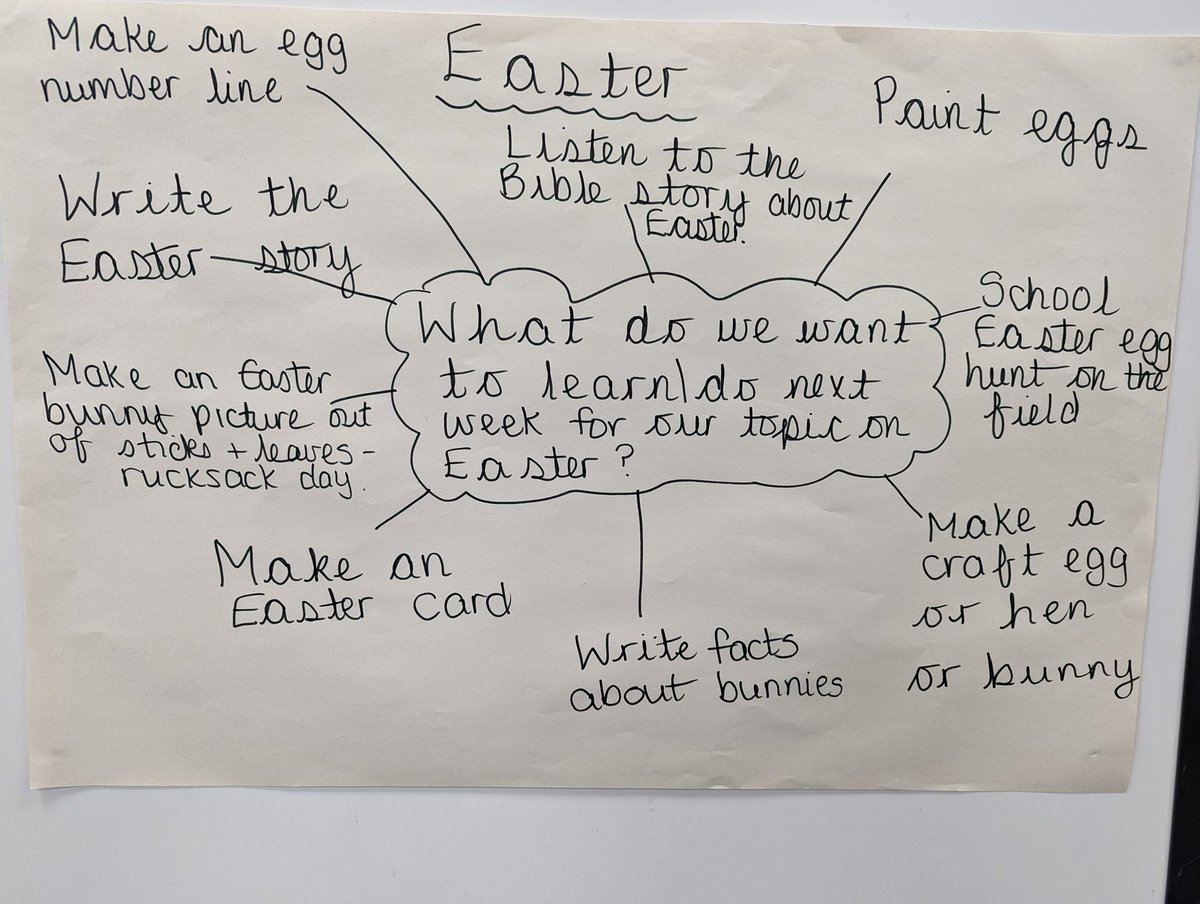 Easter
Make an egg
number line
Listen to the
Bible story about
Easter.
Paint eggs
Write the
Easter story
School
Easter egg
hunt on the
field
What do we want
to learn\do next
week for our topic on
Easter?
Make an Easter
bunny picture out
of sticks + leaves -
rucksack day.
Make an
Easter card
Write facts
about bunnies
Make a
craft egg
or hen
or bunny